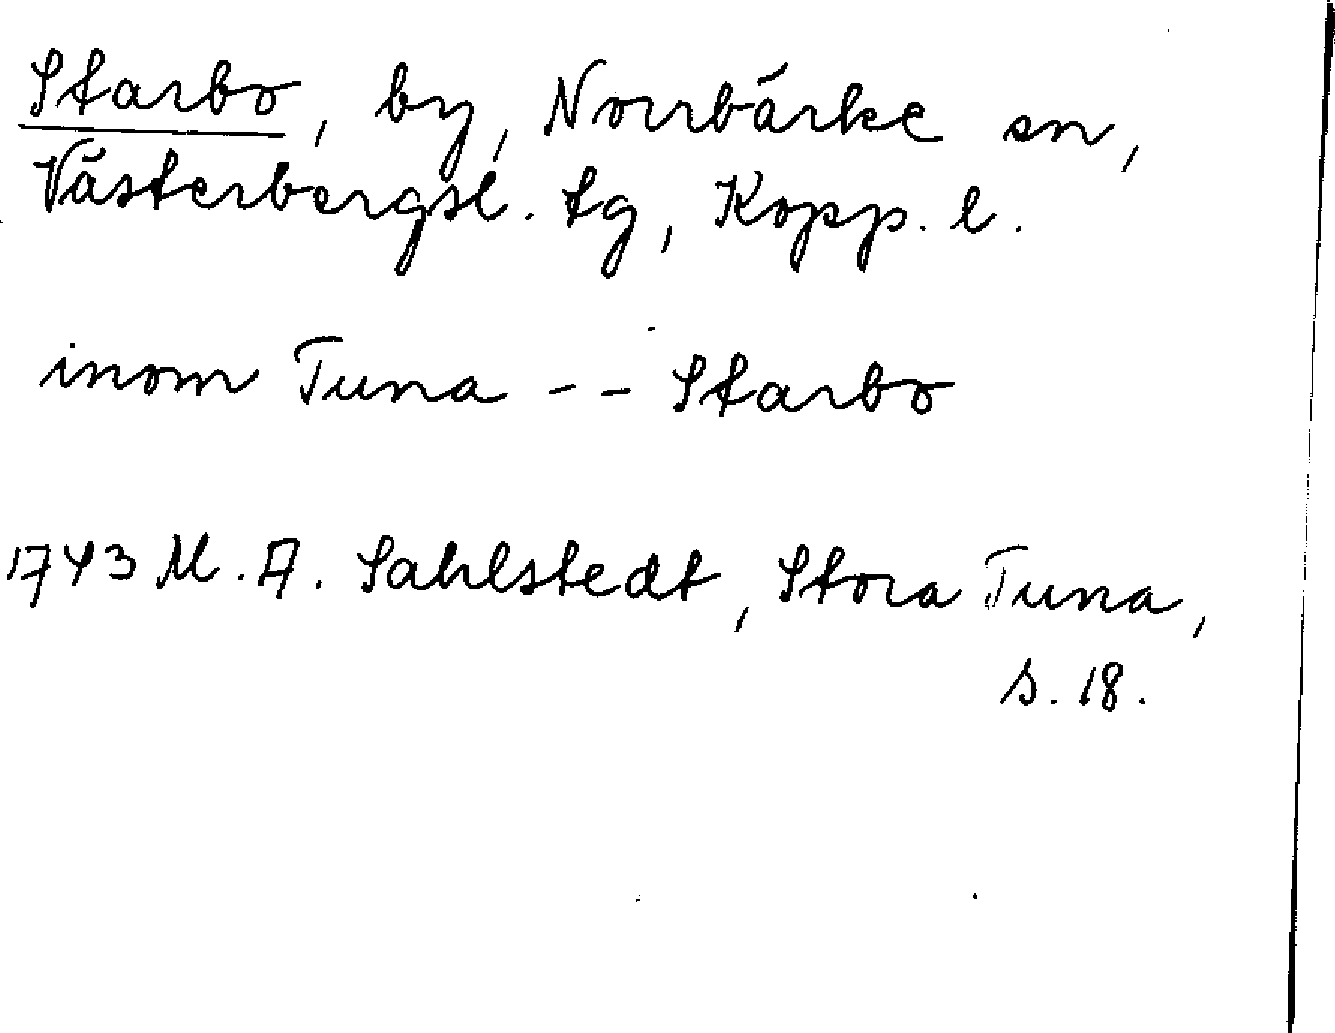 Starbo, by, Norrbärke sn,
Västerbergsl. tg, Kopp. l.
inom Tuna -- Starbo
1743 M. A. Sahlstedt, Stora Tuna,
s. 18.